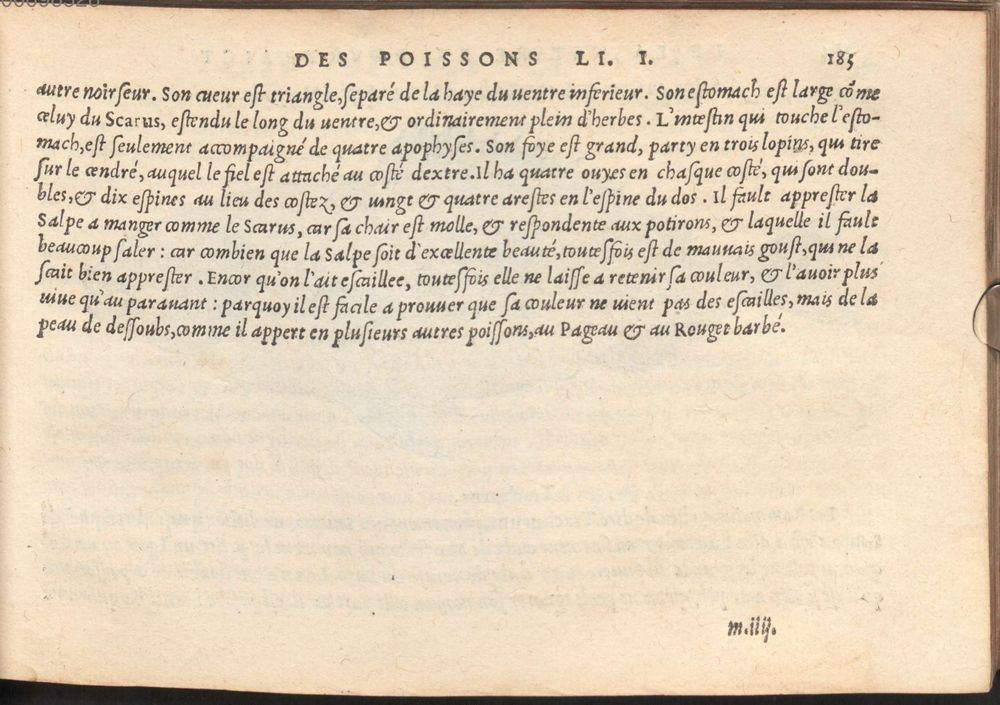 DES POISSONS LI. I. 185
autre noirseur. Son cueur est triangle, separé de la haye du uentre inferieur. Son estomach est large cõme
celuy du Scarus, estendu le long du uentre, & ordinairement plein d'herbes. L'intestin qui touche l'esto-
mach, est seulement accompaigné de quatre apophyses. Son foye est grand, party en trois lopins, qui tire
sur le cendré, auquel le fiel est attaché au costé dextre. Il ha quatre ouyes en chasque costé, qui sont dou-
bles, & dix espines au lieu des costez, & uingt & quatre arestes en l'espine du dos. Il fault apprester la
Salpe a manger comme le Scarus, car sa chair est molle, & respondente aux potirons, & laquelle il fault
beaucoup saler: car combien que la Salpe soit d'excellente beauté, toutesfois est de mauuais goust, qui ne la
scait bien apprester. Encor qu'on l'ait escaillee, toutesfois elle ne laisse a retenir sa couleur, & l'auoir plus
uiue qu'au parauant: parquoy il est facile a prouuer que sa couleur ne uient pas des escailles, mais de la
peau de dessoubs, comme il appert en plusieurs autres poissons, au Pageau & au Rouget barbé.
m.iiij.